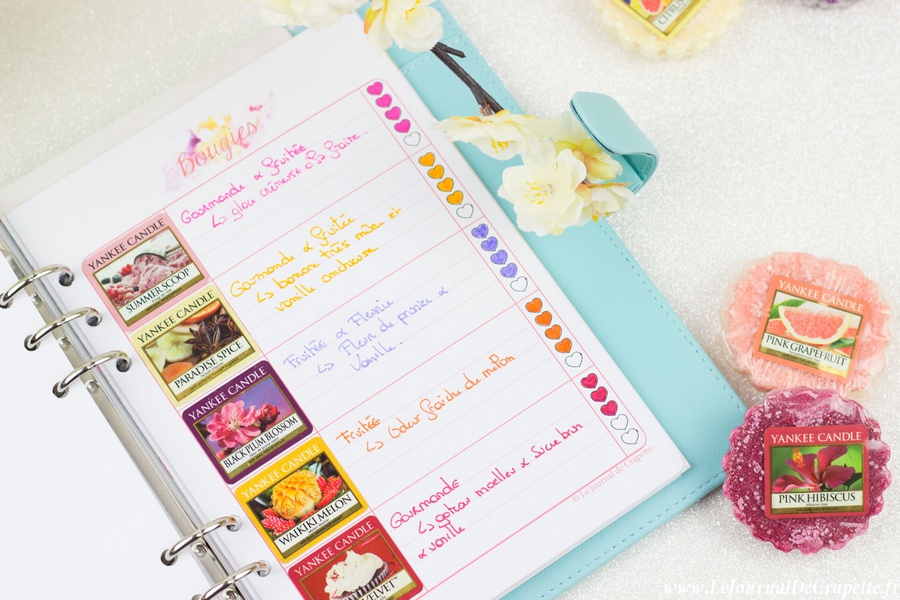 Bougies
YANKEE CANDLE
SUMMER SCOOP
Gourmande & fruitée
↳ glace crémeuse à la fraise.
YANKEE CANDLE
PARADISE SPICE
Gourmande & fruitée
↳ banane très mûre et
vanille onctueuse
YANKEE CANDLE
BLACK PLUM BLOSSOM
Fruitée & Fleurie
↳ Fleur de prunier &
Vanille.
YANKEE CANDLE
WAIKIKI MELON
Fruitée
↳ Odeur fraîche de melon
YANKEE CANDLE
VELVET
Gourmande
↳ gâteau moelleux & sucre brun
& vanille
© Le Journal de Crapette
CITRUS
YANKEE CANDLE
PINK GRAPEFRUIT
YANKEE CANDLE
PINK HIBISCUS
www.LeJournalDeCrapette.fr